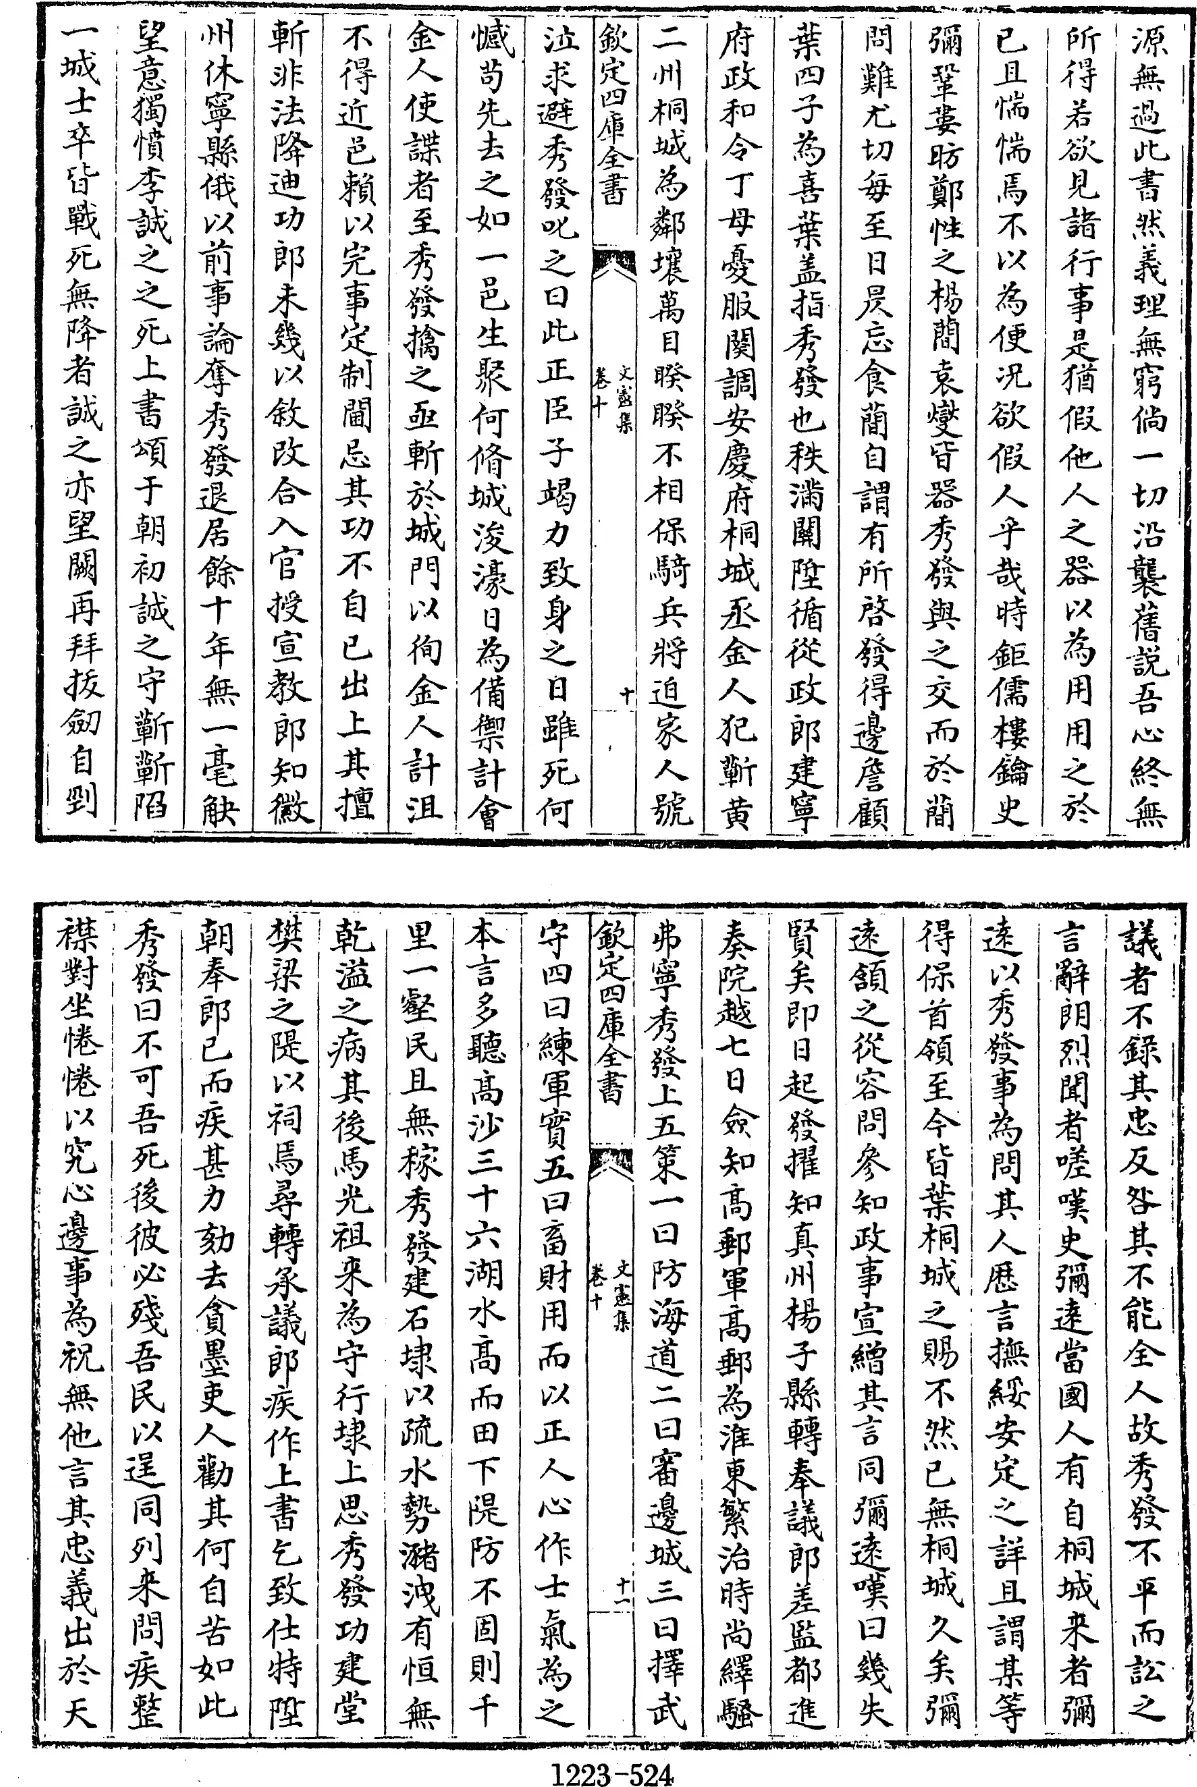 源無過此書然義理無窮倘一切沿襲舊説吾心終無
所得若欲見諸行事是猶假他人之器以為用用之於
已且惴惴焉不以為便况欲假人乎哉時鉅儒樓鑰史
彌鞏婁昉鄭性之楊蕳袁燮皆器秀發與之交而於蕳
問難尤切每至日昃忘食蕳自謂有所啓發得邊詹顧
葉四子為喜葉盖指秀發也秩滿闗陞循從政郎建寧
府政和令丁母憂服闋調安慶府桐城丞金人犯蘄黄
二州桐城為鄰壤萬目睽睽不相保騎兵將迫家人號
欽定四庫全書
文憲集
卷十
十
泣求避秀發叱之曰此正臣子竭力致身之日雖死何
憾茍先去之如一邑生聚何脩城浚濠日為備禦計會
金人使諜者至秀發擒之亟斬於城門以徇金人計沮
不得近邑頼以完事定制閫忌其功不自已出上其擅
斬非法降迪功郎未幾以敘改合入官授宣教郎知徽
州休寧縣俄以前事論奪秀發退居餘十年無一毫觖
望意獨憤李誠之之死上書頌于朝初誠之守蘄蘄陷
一城士卒皆戰死無降者誠之亦望闕再拜拔劒自剄
議者不録其忠反咎其不能全人故秀發不平而訟之
言辭朗烈聞者嗟嘆史彌逺當國人有自桐城来者彌
逺以秀發事為問其人歴言撫綏安定之詳且謂某等
得保首領至今皆葉桐城之賜不然已無桐城久矣彌
逺頷之從容問參知政事宣繒其言同彌逺嘆曰幾失
賢矣即日起發擢知真州楊子縣轉奉議郎差監都進
奏院越七日僉知髙郵軍髙郵為淮東繁治時尚繹騷
弗寧秀發上五策一曰防海道二曰審邊城三曰擇武
欽定四庫全書
文憲集
卷十
十一
守四曰練軍實五曰畜財用而以正人心作士氣為之
本言多聽髙沙三十六湖水髙而田下隄防不固則千
里一壑民且無稼秀發建石埭以疏水勢瀦洩有恒無
乾溢之病其後馬光祖来為守行埭上思秀發功建堂
樊梁之隄以祠焉尋轉承議郎疾作上書乞致仕特陞
朝奉郎已而疾甚力劾去貪墨吏人勸其何自苦如此
秀發曰不可吾死後彼必殘吾民以逞同列来問疾整
襟對坐惓惓以究心邊事為祝無他言其忠義出於天
1223-524